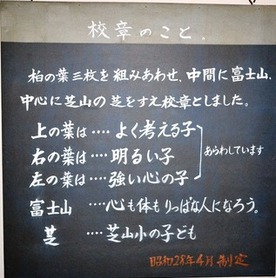 校章のこと.
柏の葉三枚を組みあわせ、中間に富士山、
中心に芝山の芝をすえ校章としました。
上の葉は‥‥よく考える子
右の葉は‥‥明るい子
左の葉は‥‥強い心の子
あらわしています
富士山 ‥‥心も体もりっぱな人になろう。
芝 ‥‥芝山小の子ども
昭和28年4月制定